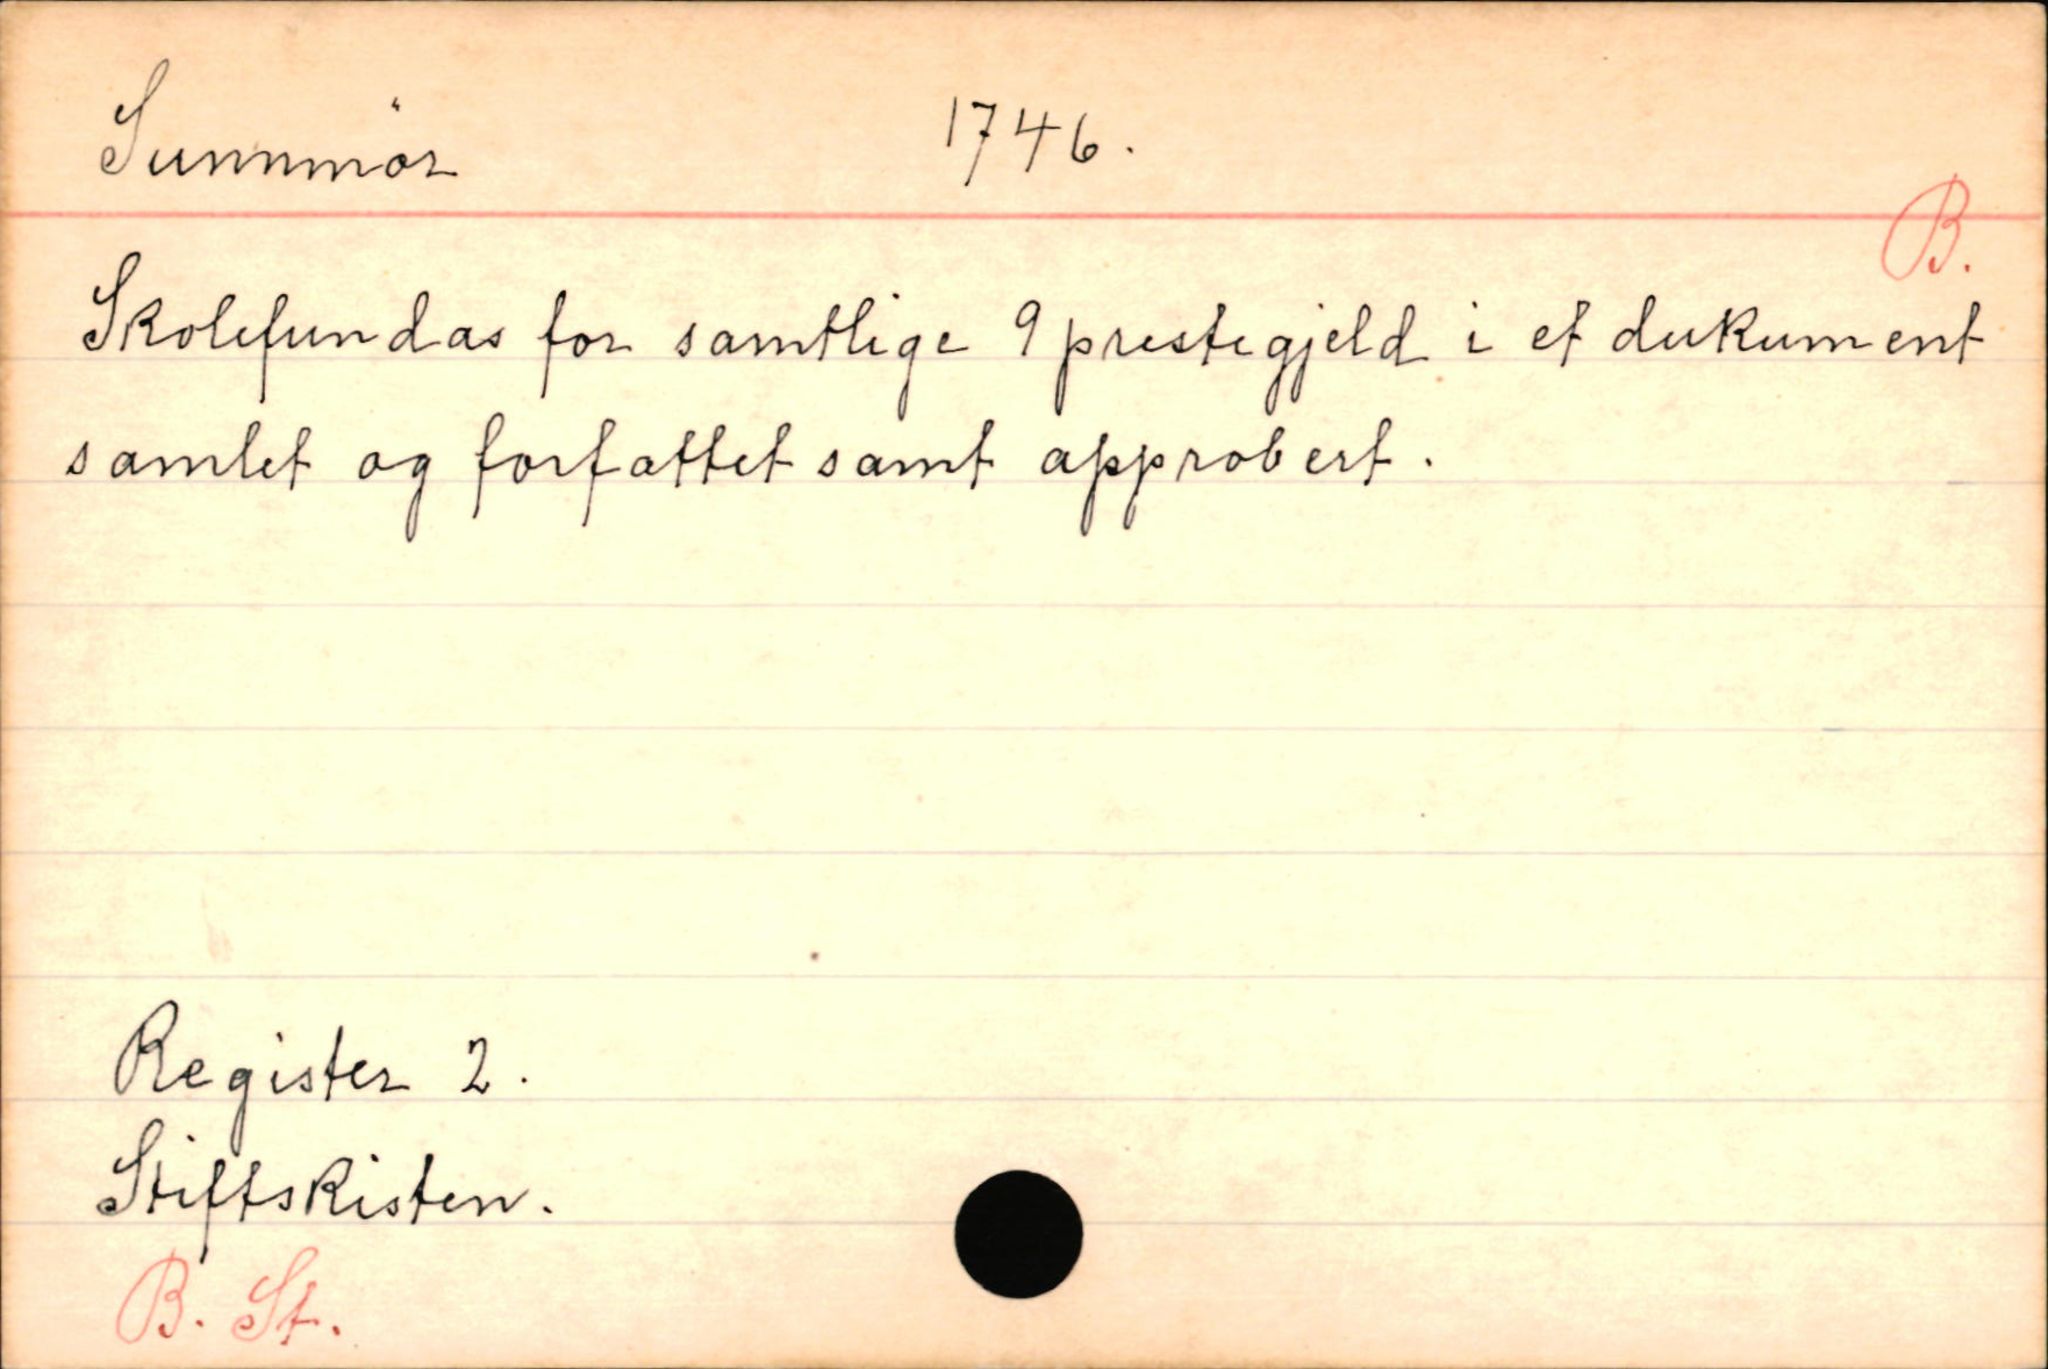 Sunnmör 1746.
B.
Skolefundas for samtlige 9 prestegjeld i et dukument
samlet og forfattet samt approbert.
Register 2.
Stiftskisten.
B. St.